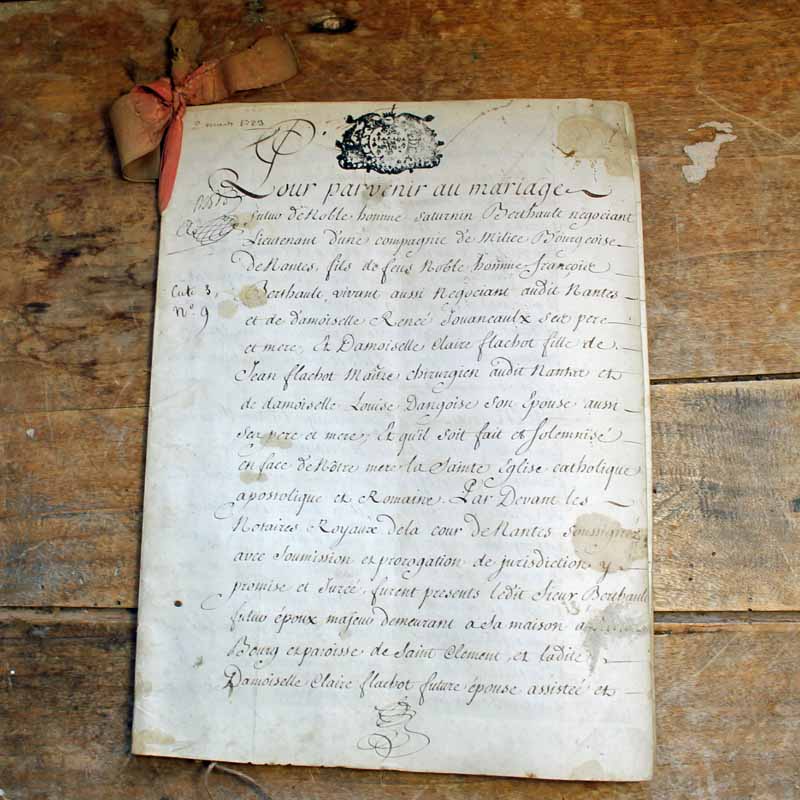 2 mars 1729
Pour parvenir au mariage
futur de Noble homme Saturnin Berthault negociant
Lieutenant d'une compagnie de Milice Bourgeoise
de Nantes, fils de feus Noble homme françois
Cote 3, Berthault, vivant aussi Negociant audit Nantes
N° 9 et de d'amoiselle Reneé Jouaneaulx ses pere
et mere, Et Damoiselle Claire flachot fille de
Jean flachot Maître chirurgien audit Nantes et
de damoiselle Louise Dangoise son Epouse aussi
ses pere et mere, Et qu'il soit fait et solemnisé
en face de Nôtre mere la Sainte Eglise catholique
apostolique et Romaine. Par Devant les
Notaires Royaux de la cour de Nantes soussignez
avec soumission et prorogation de jurisdiction y
promise et Jureé, furent presents ledit Sieur Berthault
futur époux majeur demeurant a sa maison
Bourg et paroisse de Saint Clement, et ladite
Damoiselle Claire flachot future épouse assisteé et